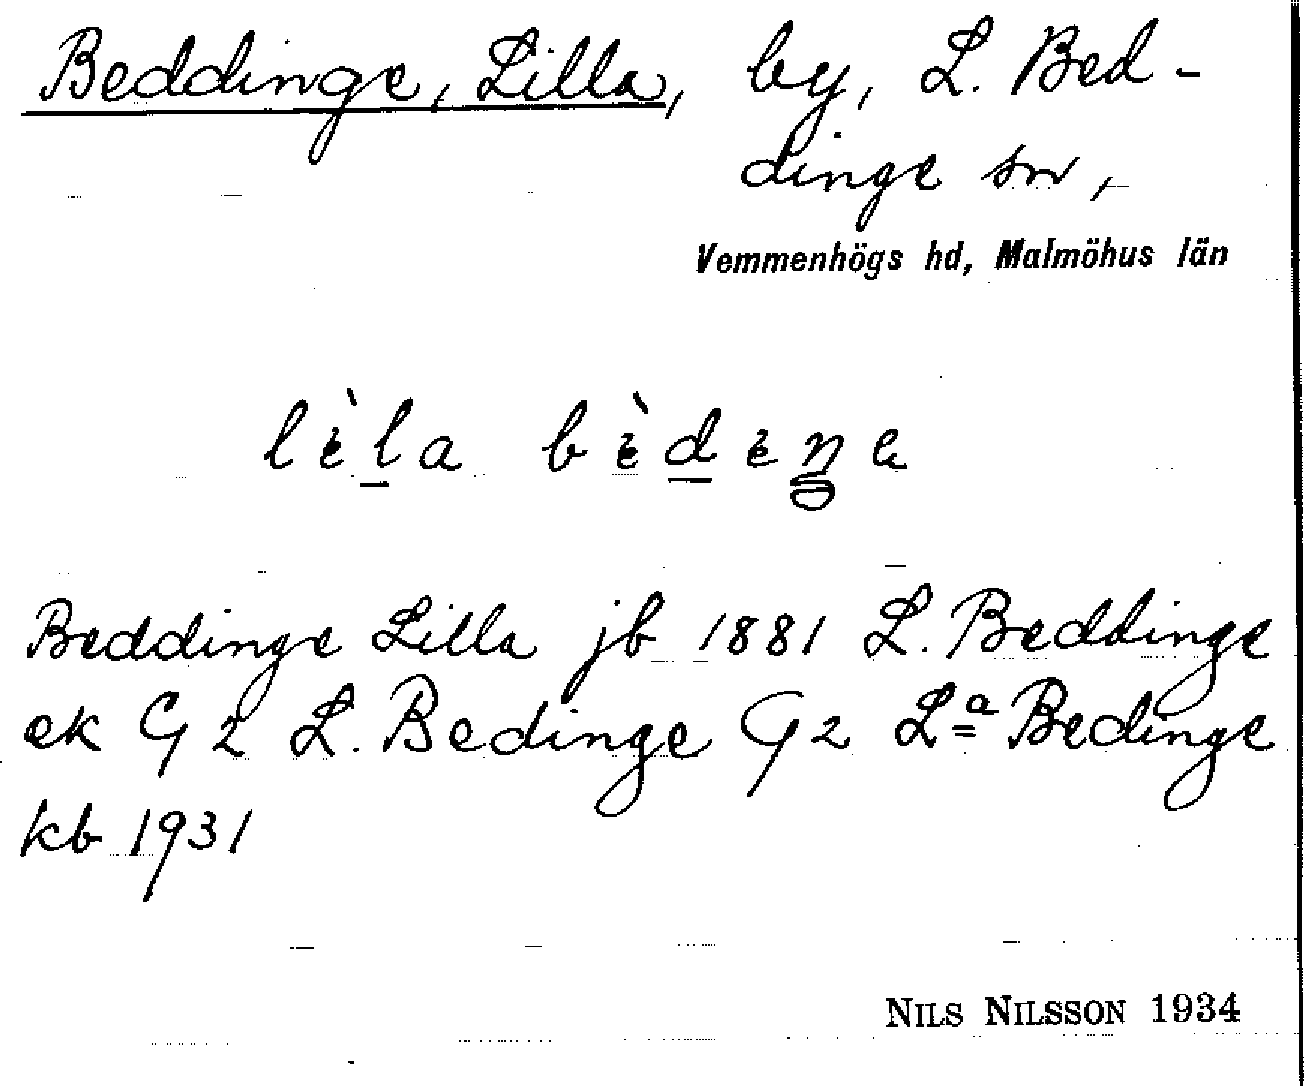 Beddinge, Lilla, by, L. Bed-
dinge sn,
Vemmenhögs hd, Malmöhus län
lèla bèdeŋa
Beddinge Lilla jb 1881 L. Beddinge
ek G 2 L. Bedinge G 2 Lª Bedinge
kb 1931
NILS NILSSON 1934